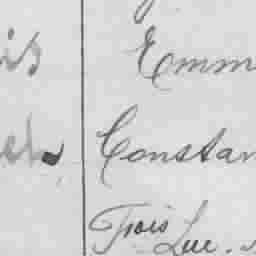 is Emm
el Constan
Trois Lue.